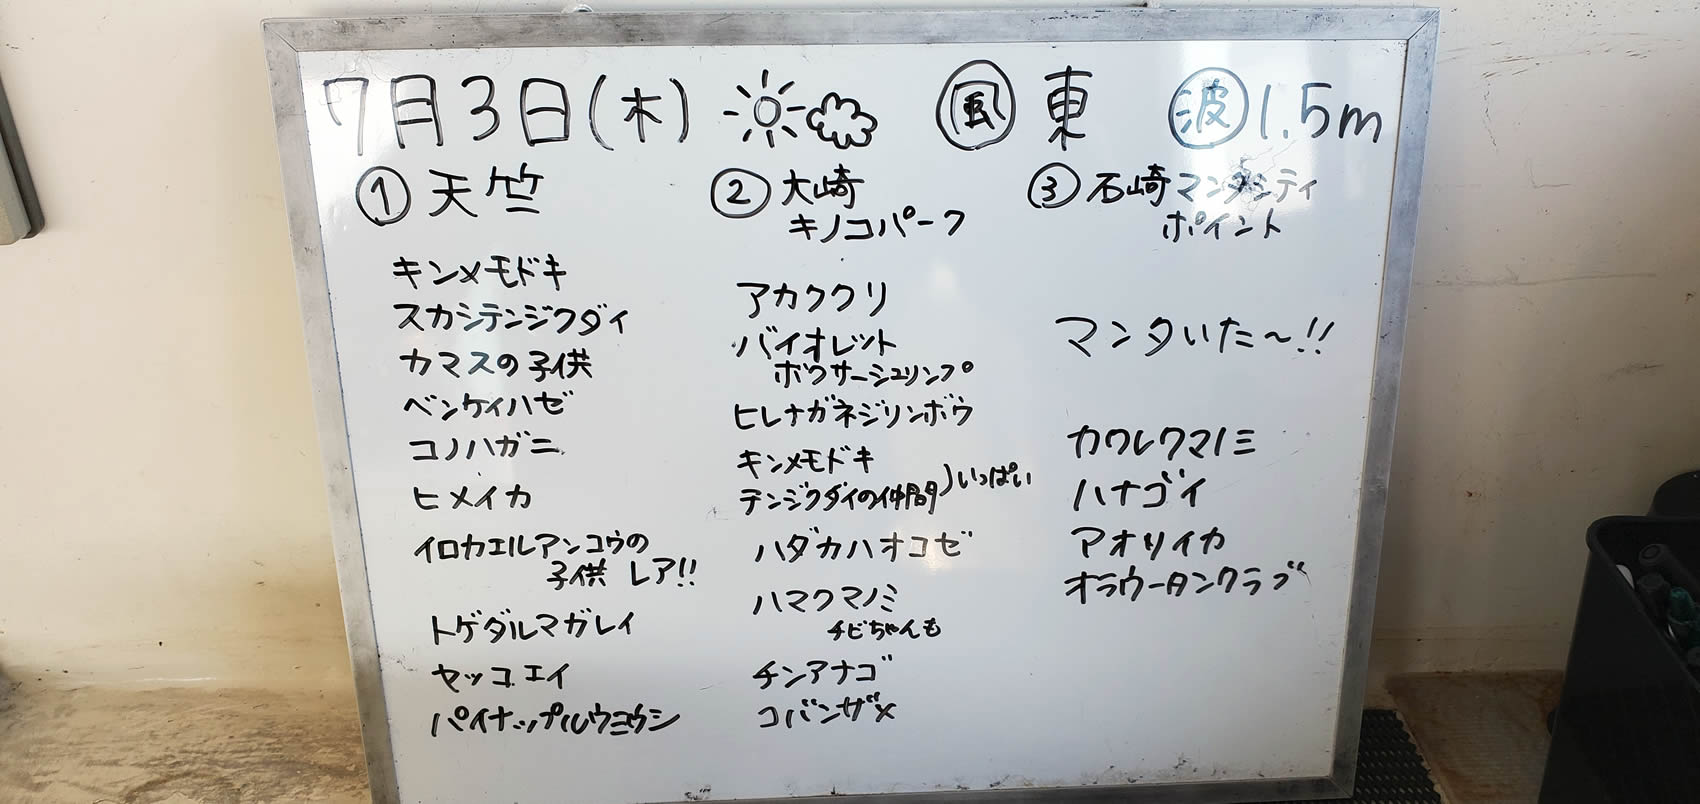 7月3日(木) 風 東 波 1.5m
① 天竺
キンメモドキ
スカシテンジクダイ
カマスの子供
ベンケイハゼ
コノハガニ
ヒメイカ
イロカエルアンコウの
子供 レア!!
トゲダルマガレイ
ヤッコエイ
パイナップルウミウシ
② 大崎
キノコパーク
アカククリ
バイオレット
ボクサーシュリンプ
ヒレナガネジリンボウ
キンメモドキ
テンジクダイの仲間 )いっぱい
ハダカハオコゼ
ハマクマノミ
チビちゃんも
チンアナゴ
コバンザメ
③ 石崎マンタシティ
ポイント
マンタいた～!!
カクレクマノミ
ハナゴイ
アオリイカ
オラウータンクラブ